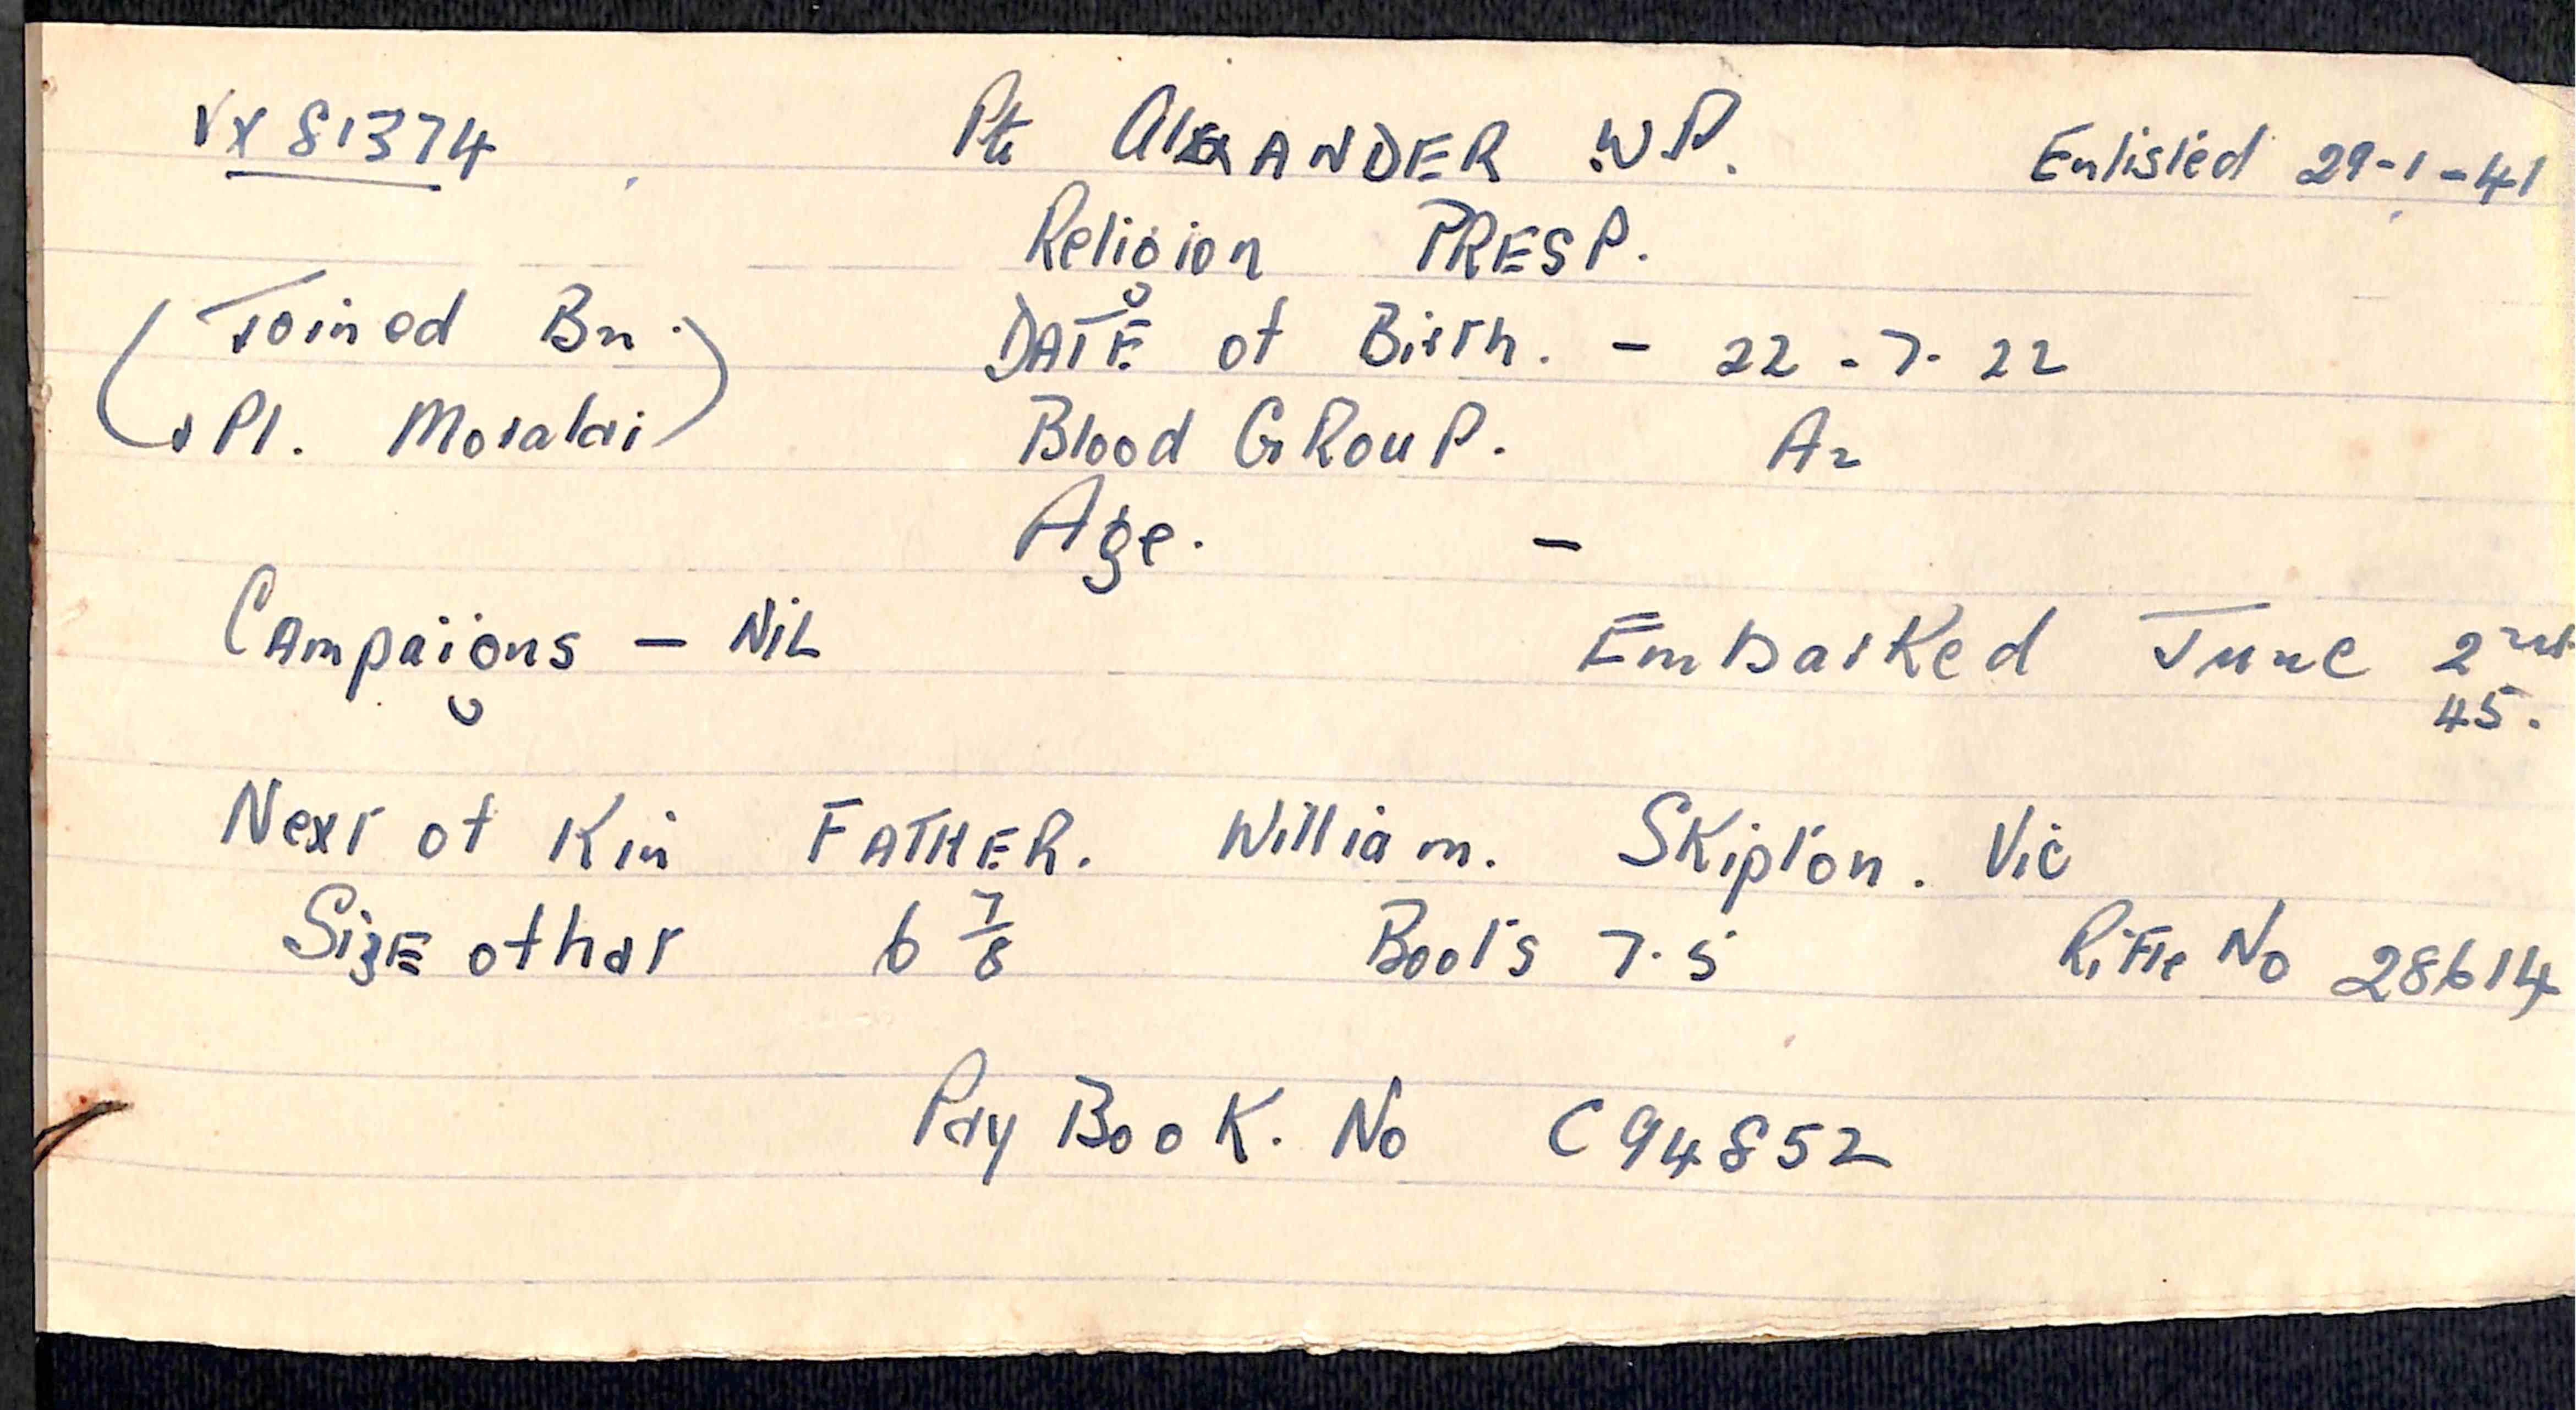 VX 81374 Pte AlexANDER W P. Enlisted 29-1-41
Religion PRESP.
(Joined Bn. DATE of Birth. - 22 - 7 - 22
& Pl. Moratai) Blood GRouP. A2
Age. -
CAmpaigns - NiL Embarked June 2nd
45.
Next of Kin FATHER. William. Skipton. Vic
SizE of hat 6 7/8 Boots 7.5 Rifle No 28614
Pay BooK. No C94852